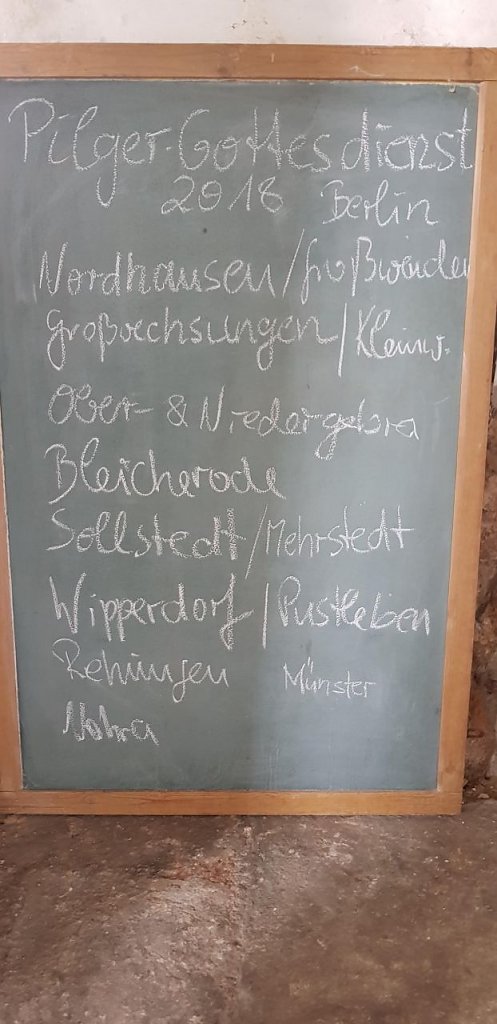 Pilger-Gottesdienst
2018 Berlin
Nordhausen/Großwechsungen/Kleinw.
Ober- & Niedergebra
Bleicherode
Sollstedt/Mehrstedt
Wipperdorf/Pustleben
Rehungen Münster
Nohra